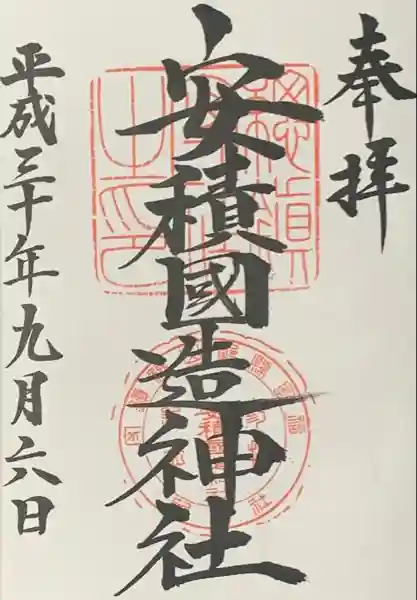 奉拝
安積國造神社
平成三十年九月六日